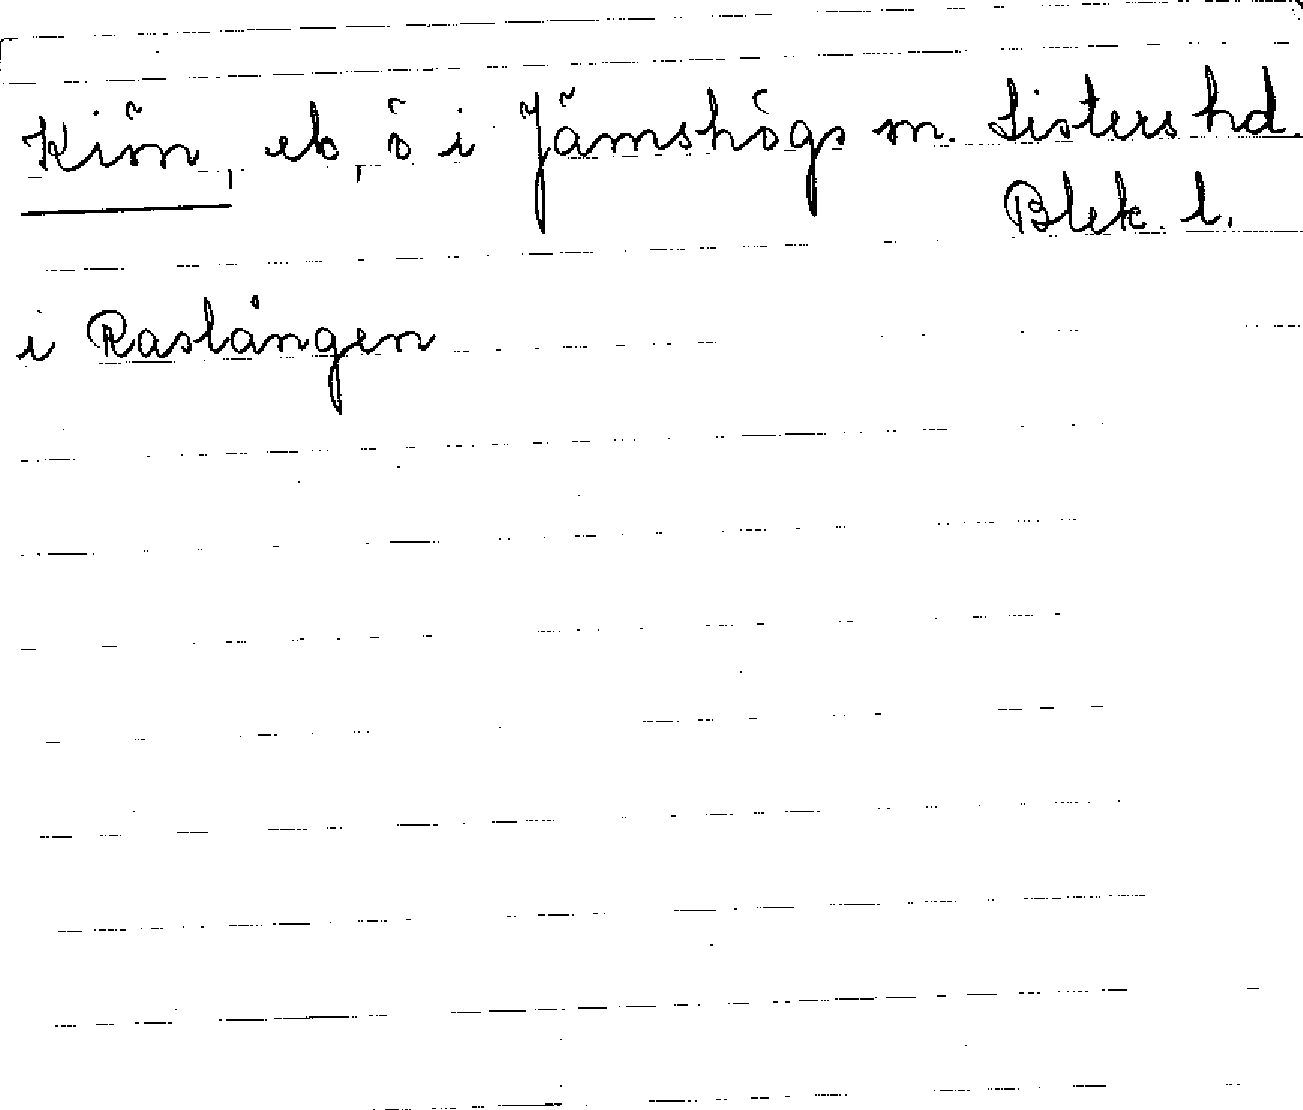 Kiön, eb, ö i Jämshögs sn. Listers hd.
Blek. l.
i Raslången